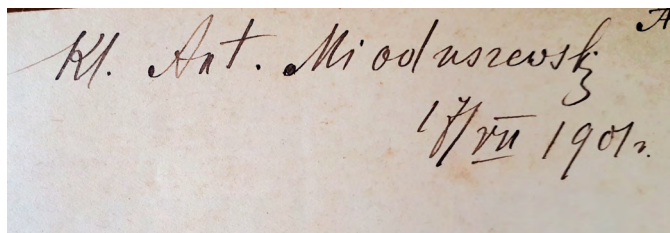 Kl. Ant. Mioduszewski
17/VII 1901 r.